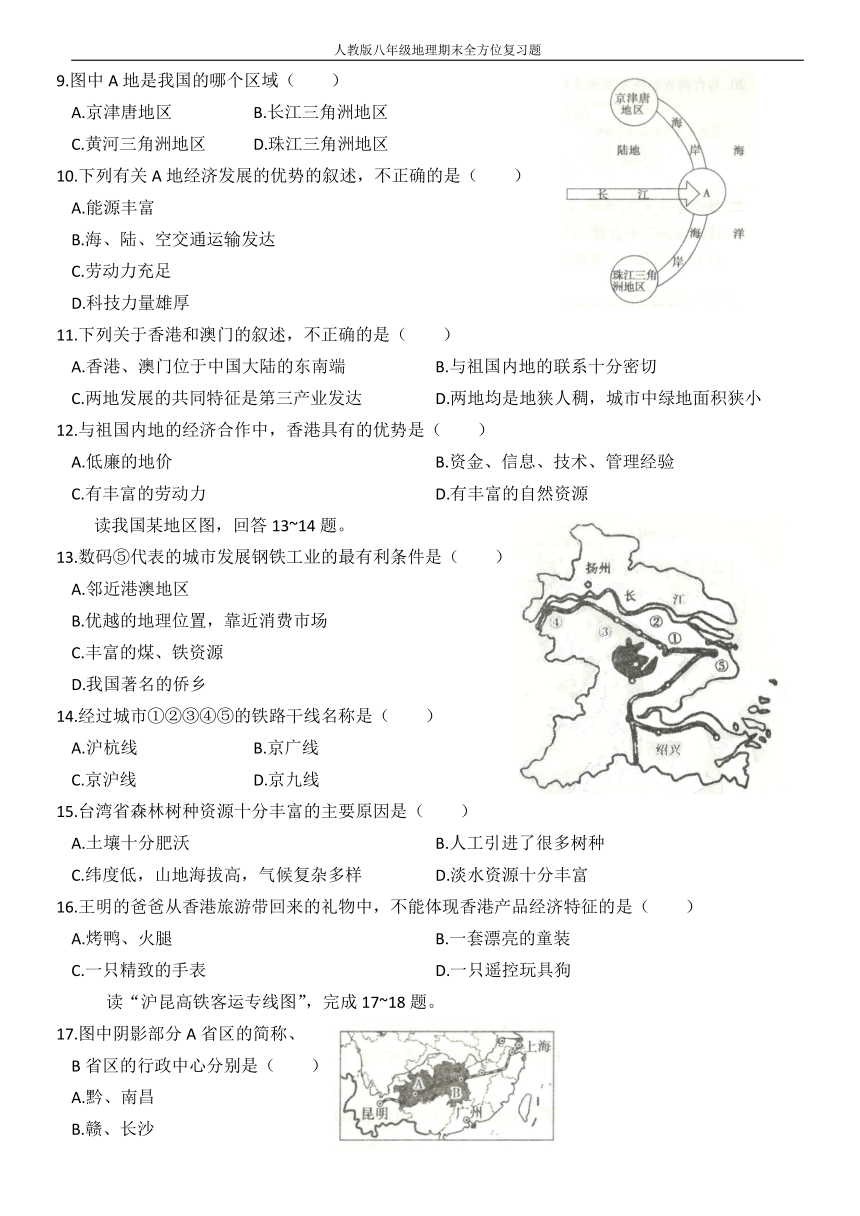 人教版八年级地理期末全方位复习题
9.图中 A 地是我国的哪个区域（　　）
A.京津唐地区　　B.长江三角洲地区
C.黄河三角洲地区　　D.珠江三角洲地区
10.下列有关 A 地经济发展的优势的叙述，不正确的是（　　）
A.能源丰富
B.海、陆、空交通运输发达
C.劳动力充足
D.科技力量雄厚
京津唐
地区
海
陆地
岸
海
长　江
A
海
洋
岸
珠江三角
洲地区
11.下列关于香港和澳门的叙述，不正确的是（　　）
A.香港、澳门位于中国大陆的东南端　　B.与祖国内地的联系十分密切
C.两地发展的共同特征是第三产业发达　　D.两地均是地狭人稠，城市中绿地面积狭小
12.与祖国内地的经济合作中，香港具有的优势是（　　）
A.低廉的地价　　B.资金、信息、技术、管理经验
C.有丰富的劳动力　　D.有丰富的自然资源
读我国某地区图，回答 13~14 题。
13.数码⑤代表的城市发展钢铁工业的最有利条件是（　　）
A.邻近港澳地区
B.优越的地理位置，靠近消费市场
C.丰富的煤、铁资源
D.我国著名的侨乡
14.经过城市①②③④⑤的铁路干线名称是（　　）
A.沪杭线　　B.京广线
C.京沪线　　D.京九线
扬州
长　江
④
③
②
①
⑤
绍兴
15.台湾省森林树种资源十分丰富的主要原因是（　　）
A.土壤十分肥沃　　B.人工引进了很多树种
C.纬度低，山地海拔高，气候复杂多样　　D.淡水资源十分丰富
16.王明的爸爸从香港旅游带回来的礼物中，不能体现香港产品经济特征的是（　　）
A.烤鸭、火腿　　B.一套漂亮的童装
C.一只精致的手表　　D.一只遥控玩具狗
读“沪昆高铁客运专线图”，完成 17~18 题。
17.图中阴影部分 A 省区的简称、
B 省区的行政中心分别是（　　）
A.黔、南昌
B.赣、长沙
上海
A
B
昆明
广州